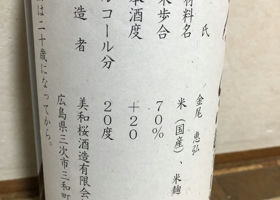 氏 金尾 恵弘
材料名 米(国産)、米麹
米歩合 70%
本酒度 +20
ルコール分 20度
造者 美和桜酒造有限会
広島県三次市三和町
は二十歳になってから。